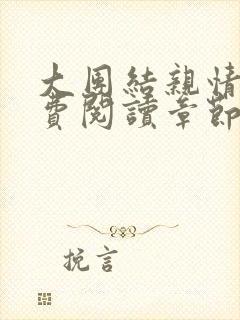 大團結親情
費閱讀章節
挽言